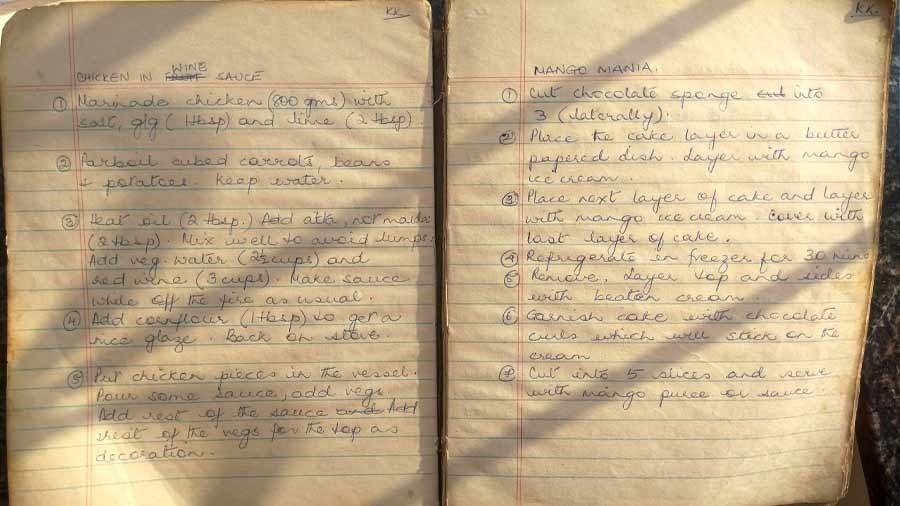 KK
WINE
CHICKEN IN FRUIT SAUCE
① Marinade chicken (800 gms) with
salt, g/g (1 tbsp) and lime (2 tbsp)
② Parboil cubed carrots, beans
+ potatoes. Keep water.
③ Heat oil (2 tbsp.) Add atta, not maida
(2 tbsp). Mix well to avoid lumps.
Add veg. water (2½ cups) and
red wine (3 cups). Make sauce
while off the fire as usual.
④ Add cornflour (1 tbsp) to get a
nice glaze. Back on stove.
⑤ Put chicken pieces in the vessel.
Pour some sauce, add vegs.
Add rest of the sauce and Add
rest of the vegs for the top as
decoration.
KK.
MANGO MANIA.
① Cut chocolate sponge into
3 (laterally).
② Place the cake layer in a butter
papered dish. Layer with mango
ice cream.
③ Place next layer of cake and layer
with mango ice cream. Cover with
last layer of cake.
④ Refrigerate in freezer for 30 mins
⑤ Remove, layer top and sides
with beaten cream.
⑥ Garnish cake with chocolate
curls which will stick on the
cream
⑦ Cut into 5 slices and serve
with mango puree or sauce